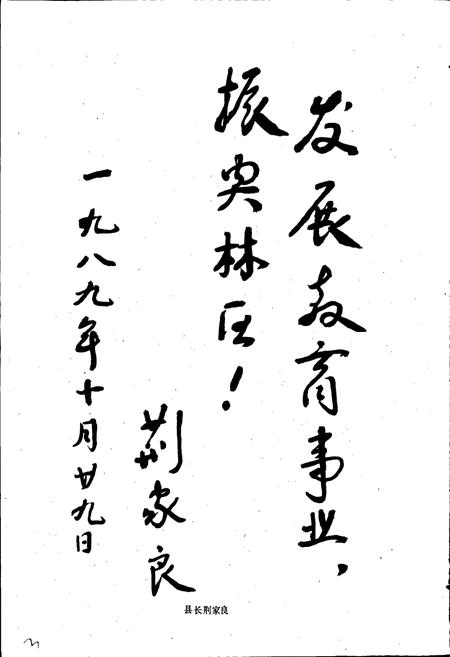 发展教育事业，
振兴林区！
荆家良
一九八九年十月廿九日
县长荆家良